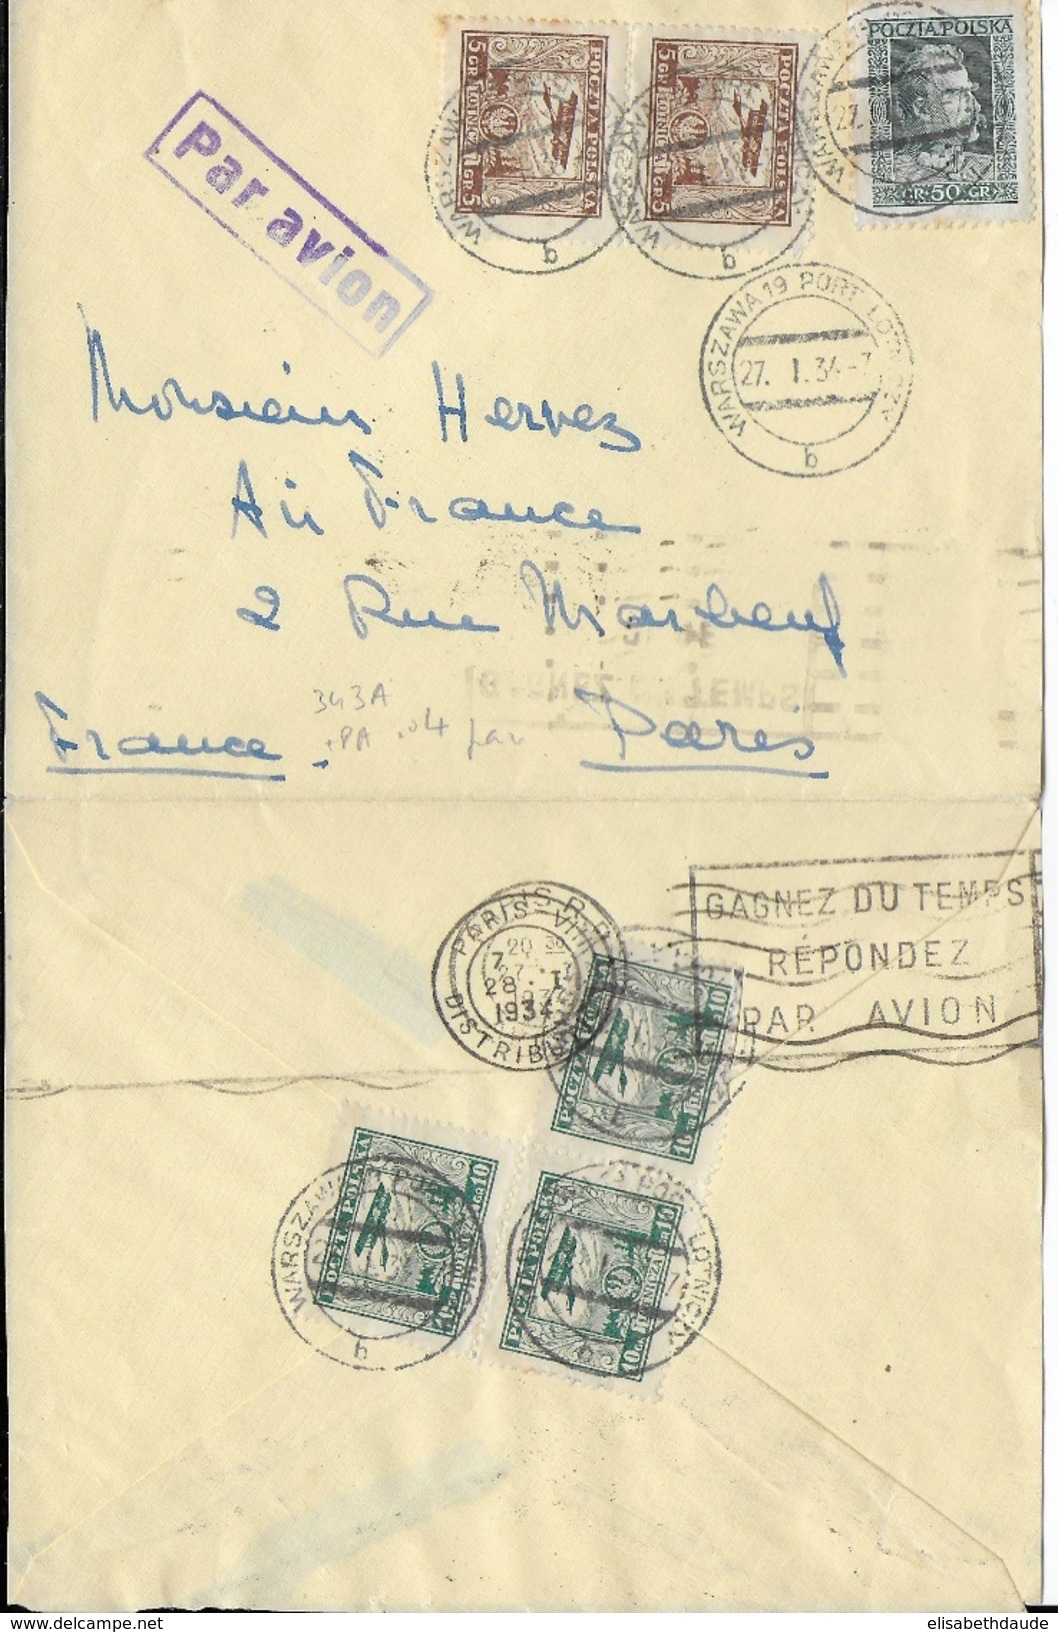 POCZTA POLSKA
5 GR. LOTNICZA GR 5
POCZTA POLSKA
5 GR. LOTNICZA GR 5
POCZTA POLSKA
GR. 50 GR
Par avion
WARSZAWA 19 PORT LOTNICZY
27. I. 34-7
b
Monsieur Hervez
Air France
2 Rue Marbeuf
343A
France. Paris
GAGNEZ DU TEMPS
RÉPONDEZ
PAR AVION
PARIS VIII
DISTRIBUTION
28 . I
1934
POCZTA POLSKA
10 GR LOTNICZA GR 10
POCZTA POLSKA
10 GR LOTNICZA GR 10
POCZTA POLSKA
10 GR LOTNICZA GR 10
WARSZAWA
b
LOTNICZY
b
elisabethdaude